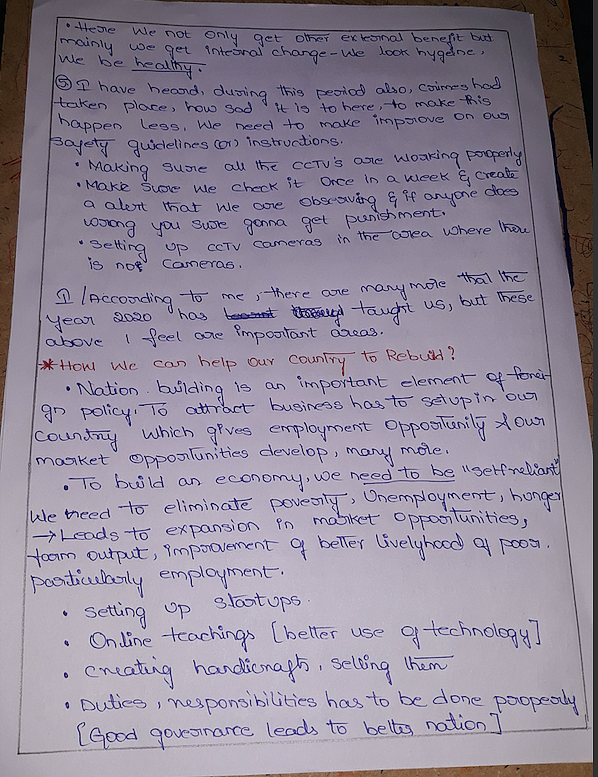 • Here We not only get other external benefit but
mainly we get internal change - We look hygene,
We be healthy.
⑤ I have heard, during this period also, crimes had
taken place, how sad it is to here, to make this
happen less, We need to make improve on our
safety guidelines (or) instructions.
• Making sure all the CCTV's are working properly
• Make sure we check it once in a week & create
a alert that we are observing & if anyone does
wrong you sure gonna get punishment.
• Setting up CCTV cameras in the area where there
is not cameras.
I /According to me, there are many more that the
year 2020 has taught us, but these
above I feel are important areas.
* How we can help our country to Rebuild?
• Nation building is an important element of forei-
gn policy. To attract business has to setup in our
country which gives employment opportunity & our
market opportunities develop, many more.
• To build an economy, we need to be "self-reliant"
We need to eliminate poverty, Unemployment, hunger
→ Leads to expansion in market opportunities,
farm output, improvement of better livelyhood of poor.
particularly employment.
• setting up startups.
• Online teachings [better use of technology]
• creating handicrafts, selling them
• Duties, responsibilities has to be done properly
[Good governance leads to better nation]